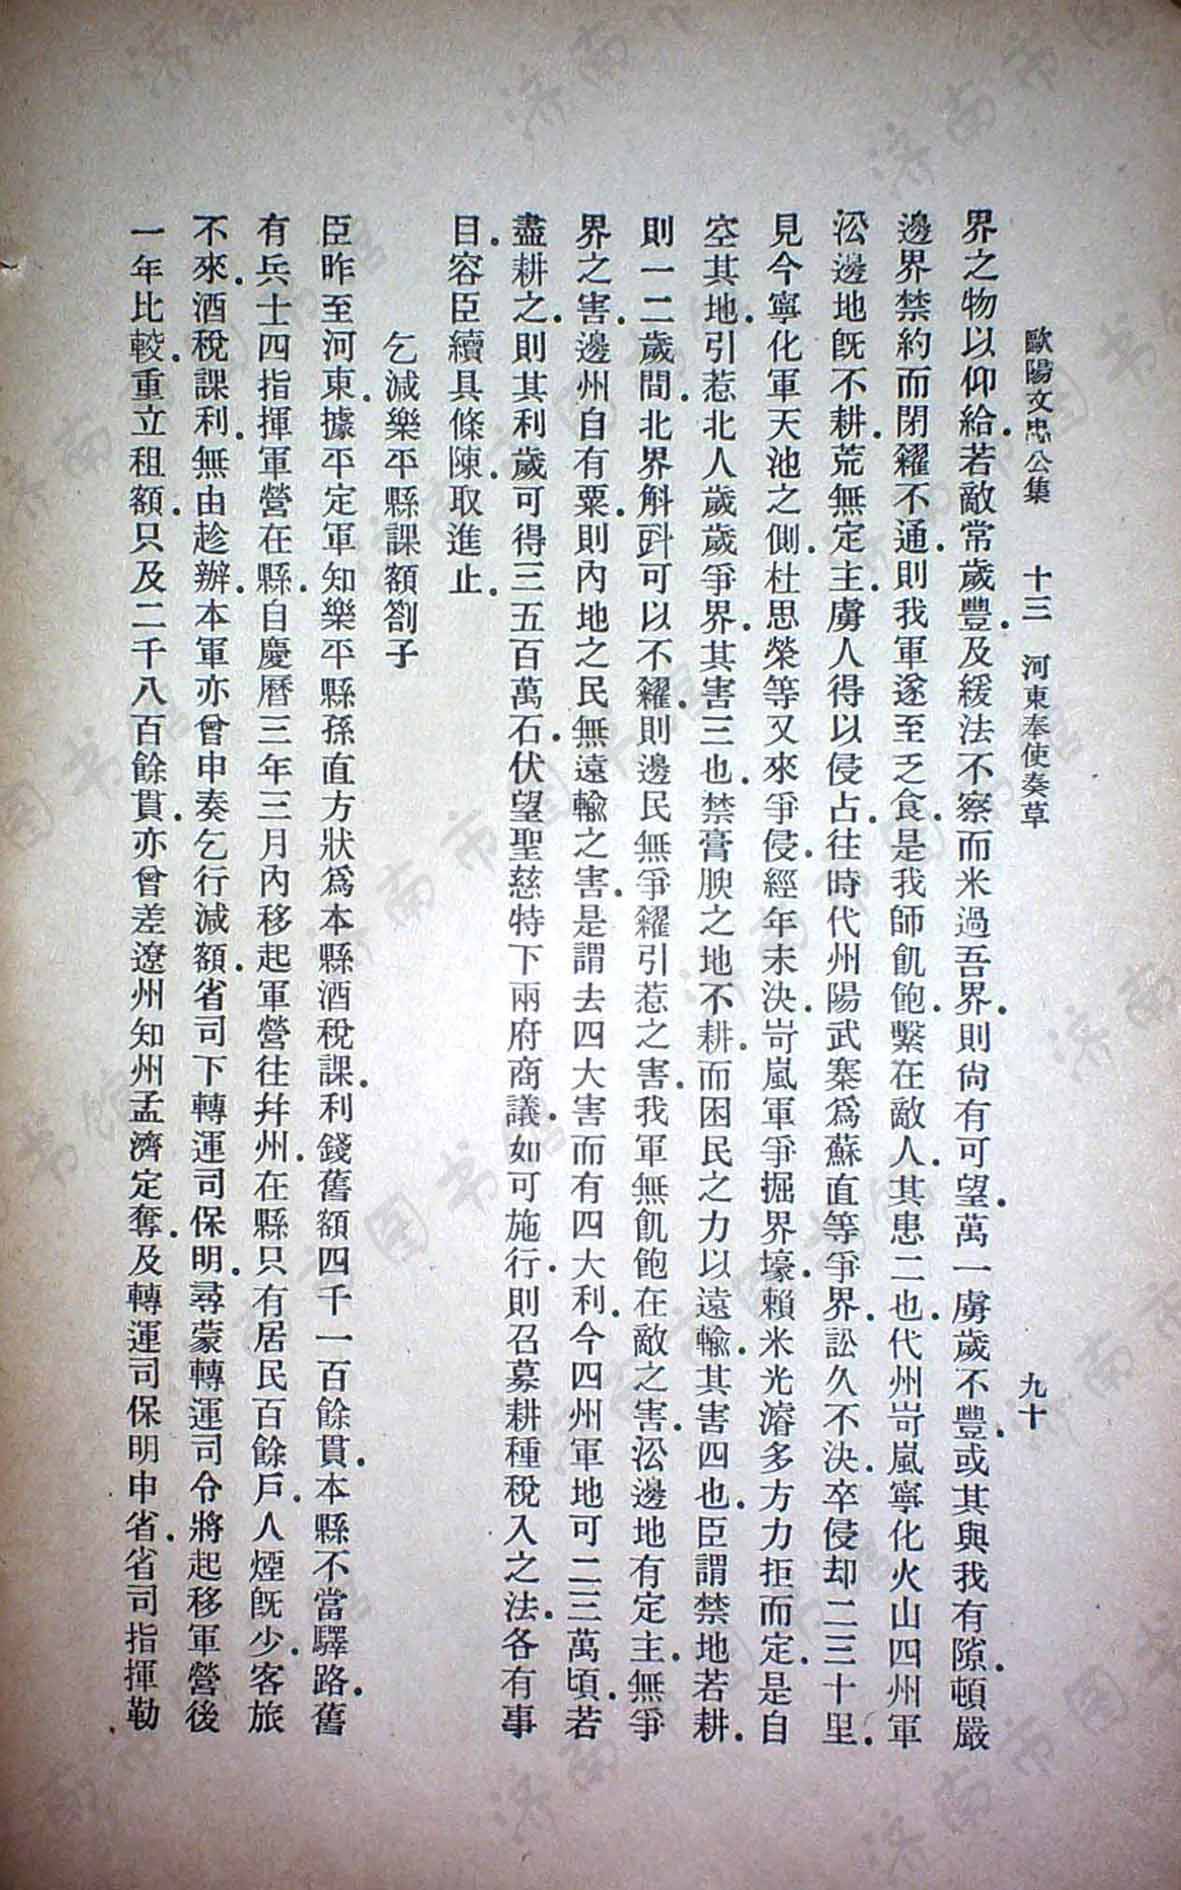 歐陽文忠公集　十三　河東奉使奏草　九十
界之物以仰給.若敵常歲豐.及緩法不察而米過吾界.則尙有可望.萬一虜歲不豐.或其與我有隙.頓嚴
邊界禁約而閉糴不通.則我軍遂至乏食.是我師飢飽.繫在敵人.其患二也.代州岢嵐寧化火山四州軍
㳂邊地旣不耕.荒無定主.虜人得以侵占.往時代州陽武寨爲蘇直等爭界.訟久不決.卒侵却二三十里.
見今寧化軍天池之側.杜思榮等又來爭侵.經年未決.岢嵐軍爭掘界壕.賴米光濬多方力拒而定.是自
空其地.引惹北人歲歲爭界.其害三也.禁膏腴之地不耕.而困民之力以遠輸.其害四也.臣謂禁地若耕.
則一二歲間.北界斛㪷可以不糴.則邊民無爭糴引惹之害.我軍無飢飽在敵之害.㳂邊地有定主.無爭
界之害.邊州自有粟.則內地之民無遠輸之害.是謂去四大害而有四大利.今四州軍地可二三萬頃.若
盡耕之.則其利歲可得三五百萬石.伏望聖慈特下兩府商議.如可施行.則召募耕種稅入之法.各有事
目.容臣續具條陳.取進止.
乞減樂平縣課額劄子
臣昨至河東.據平定軍知樂平縣孫直方狀爲本縣酒稅課.利錢舊額四千一百餘貫.本縣不當驛路.舊
有兵士四指揮軍營在縣.自慶曆三年三月內移起軍營往幷州.在縣只有居民百餘戶.人煙旣少.客旅
不來.酒稅課利.無由趁辦.本軍亦曾申奏乞行減額.省司下轉運司保明.尋蒙轉運司令將起移軍營後
一年比較.重立租額.只及二千八百餘貫.亦曾差遼州知州孟濟定奪.及轉運司保明申省.省司指揮勒